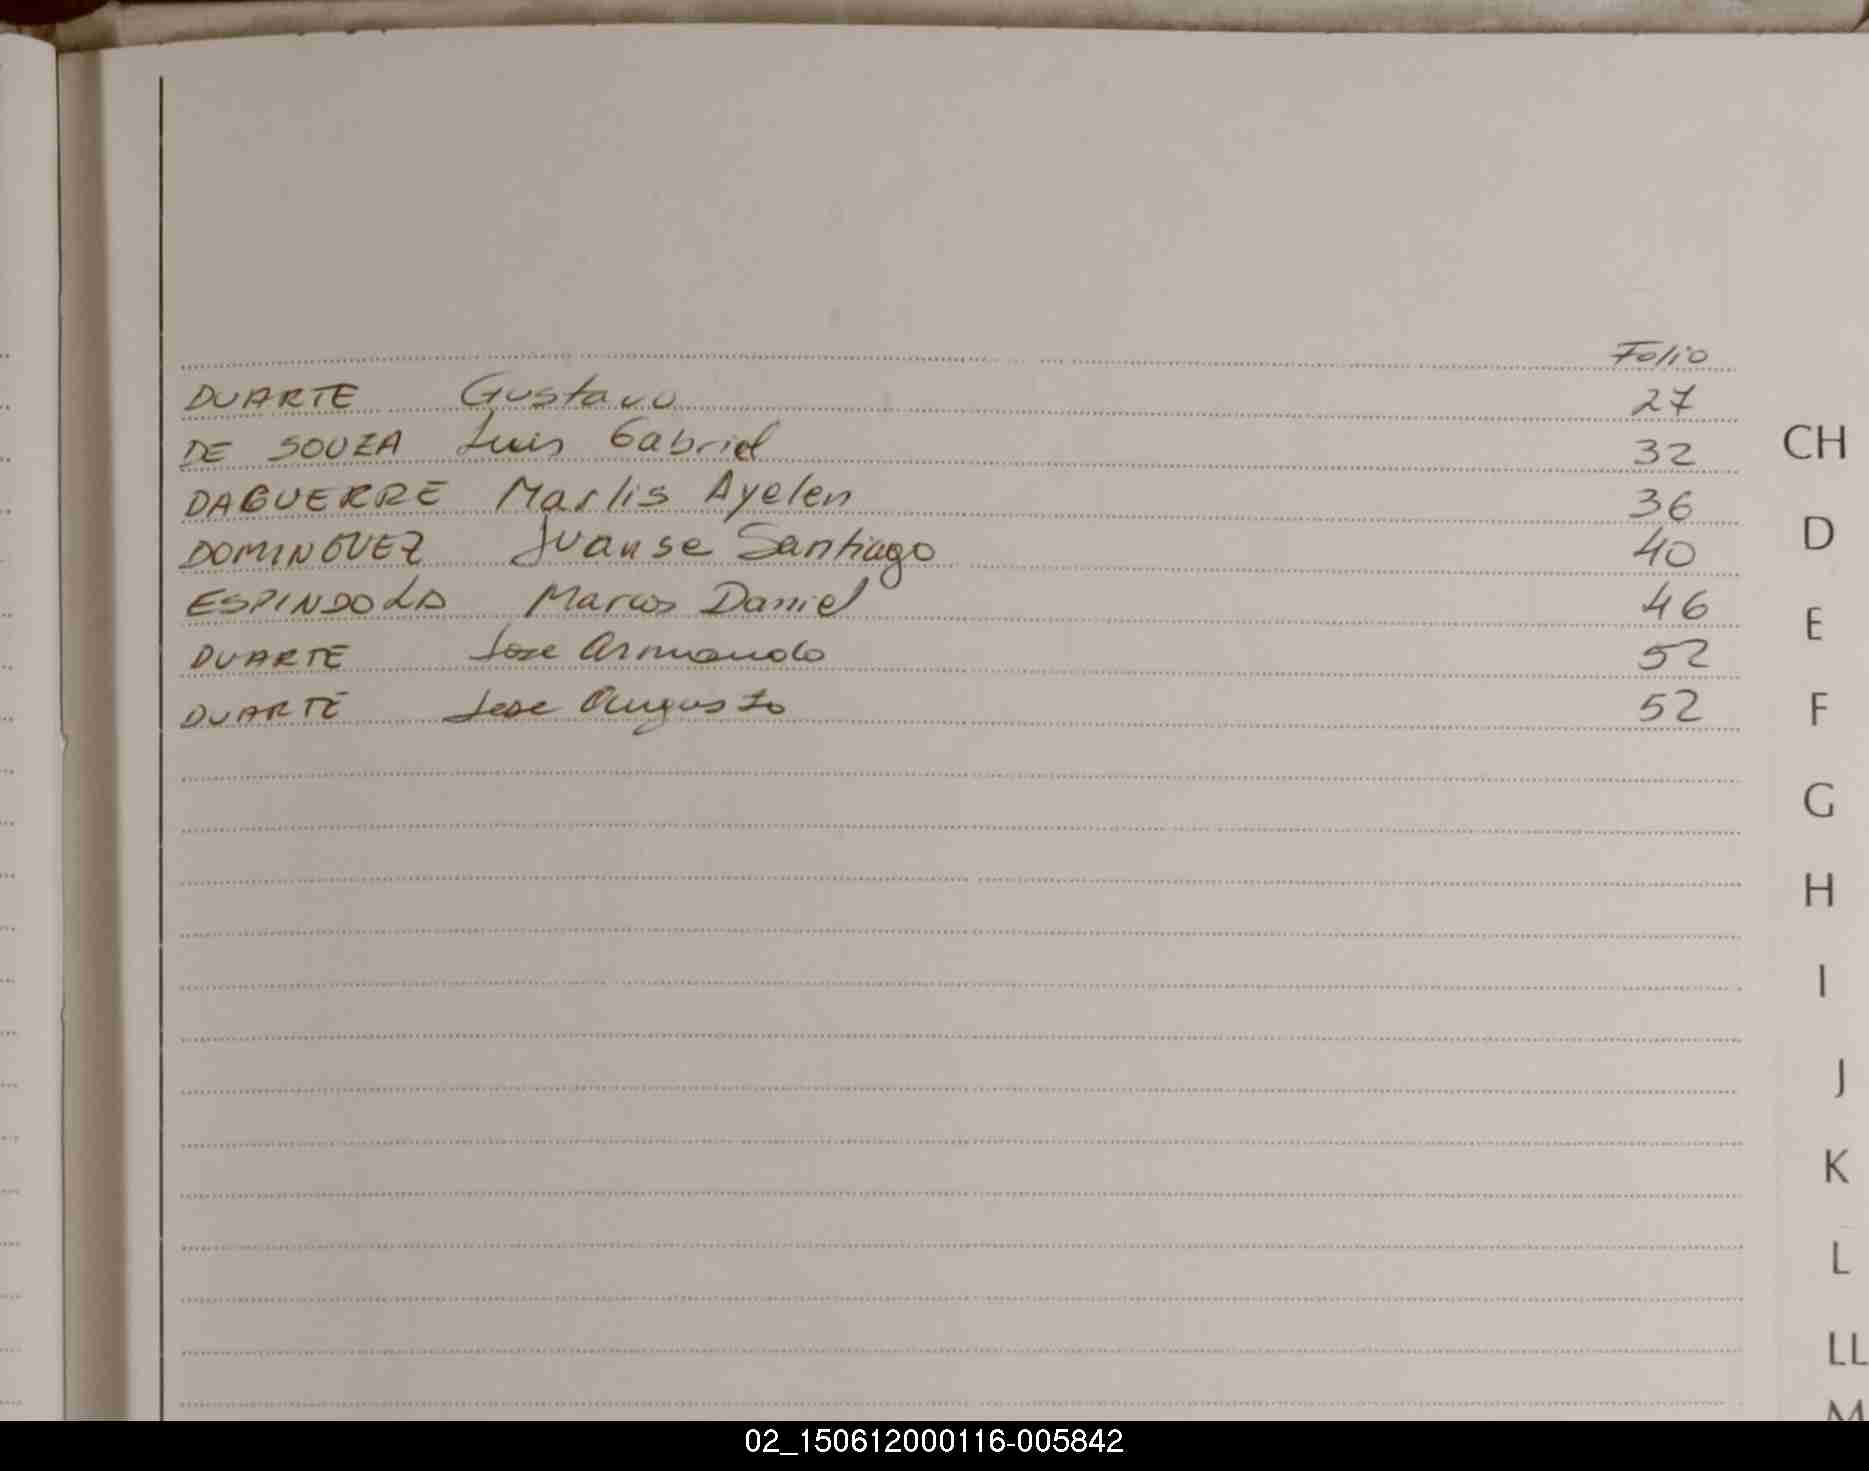 Folio
DUARTE Gustavo 27
DE SOUZA Luis Gabriel 32
DAGUERRE Marlis Ayelen 36
DOMINGUEZ Juanse Santiago 40
ESPINDOLA Marcos Daniel 46
DUARTE Jose Armando 52
DUARTE Jose Augusto 52
CH
D
E
F
G
H
I
J
K
L
LL
M
02_150612000116-005842